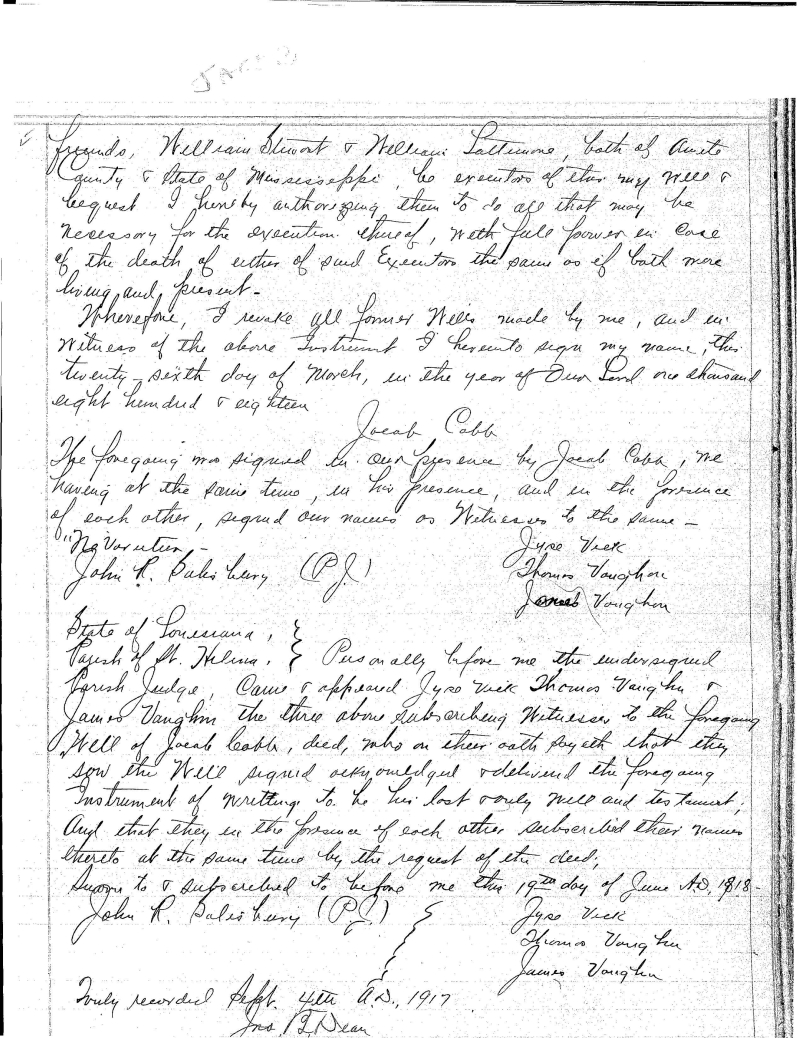 JACOB
friends, William Stewart & William Lattimore, both of Amite
County & State of Mississippi, be executors of this my Will &
bequest I hereby authorizing them to do all that may be
necessary for the execution thereof, with full power in Case
of the death of either of said Executors the same as if both were
living and present -
Wherefore, I revoke all former Wills made by me, and in
Witness of the above Instrument I hereunto sign my name, this
twenty-sixth day of March, in the year of Our Lord one thousand
eight hundred & eighteen
Jacob Cobb
The foregoing was signed in our presence by Jacob Cobb, we
having at the same time, in his presence, and in the presence
of each other, signed our names as Witnesses to the same -
"Ne Varietur -
John R. Salisbury (P.J.)
Jyse Vick
Thomas Vaughn
James Vaughn
State of Louisiana,
Parish of St. Helena. Personally before me the undersigned
Parish Judge, Came & appeared Jyse Vick Thomas Vaughn &
James Vaughn the three above subscribing Witnesses to the foregoing
Will of Jacob Cobb, decd, who on their oath sayeth that they
saw the Will signed acknowledged & delivered the foregoing
Instrument of writing to be his last & only Will and testament;
And that they in the presence of each other subscribed their names
thereto at the same time by the request of the decd;
Sworn to & subscribed to before me this 19th day of June A.D., 1818 -
John R. Salisbury (P.J.)
Jyse Vick
Thomas Vaughn
James Vaughn
Truly recorded Sept. 4th A.D., 1917
Jno. T. Dean